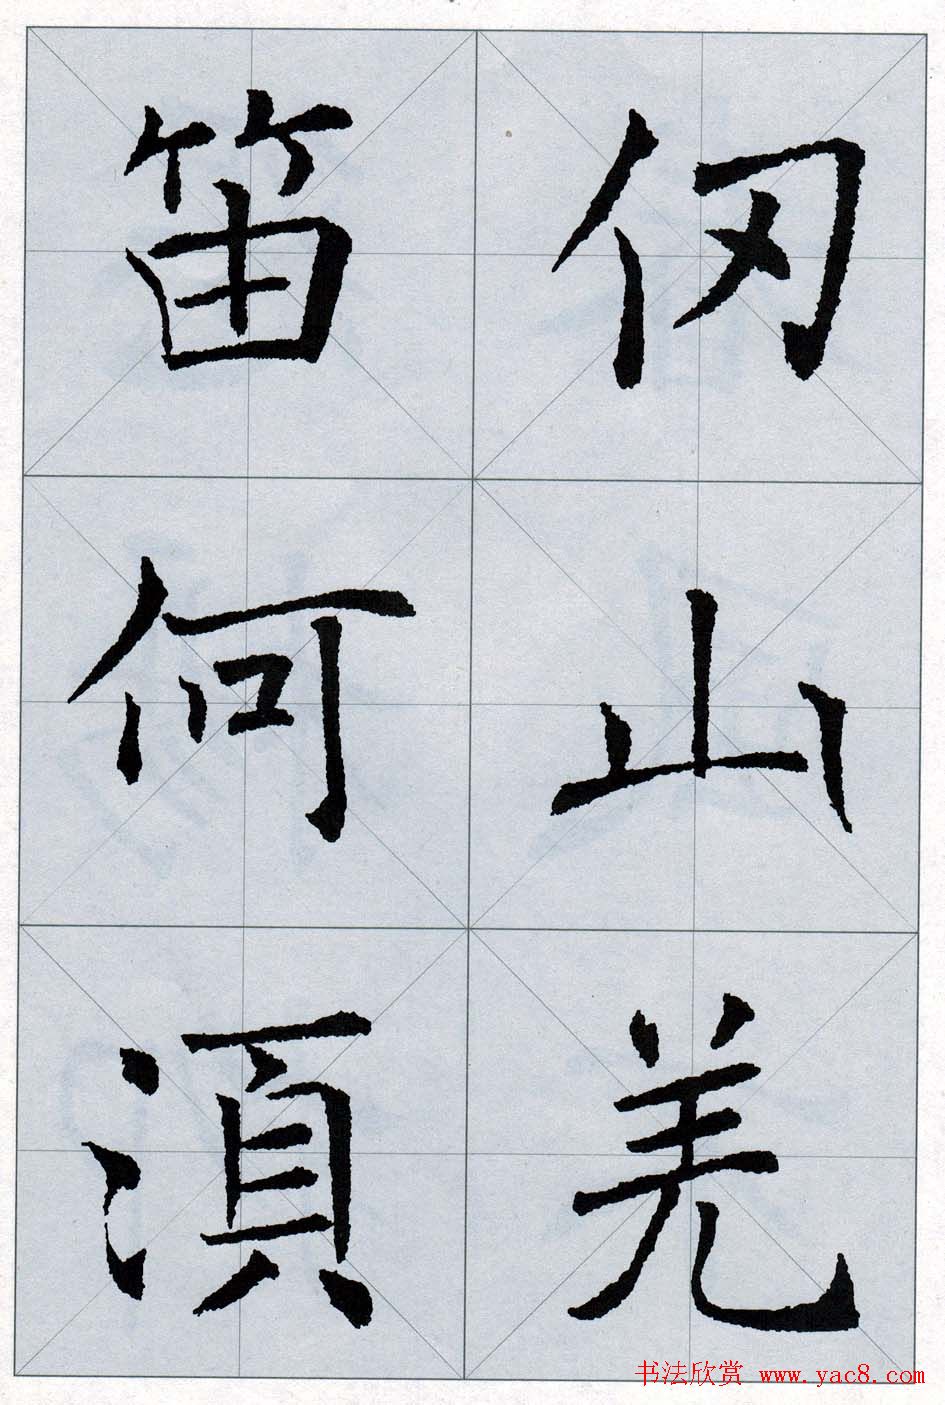 仞山羌
笛何湏
书法欣赏 www.yac8.com